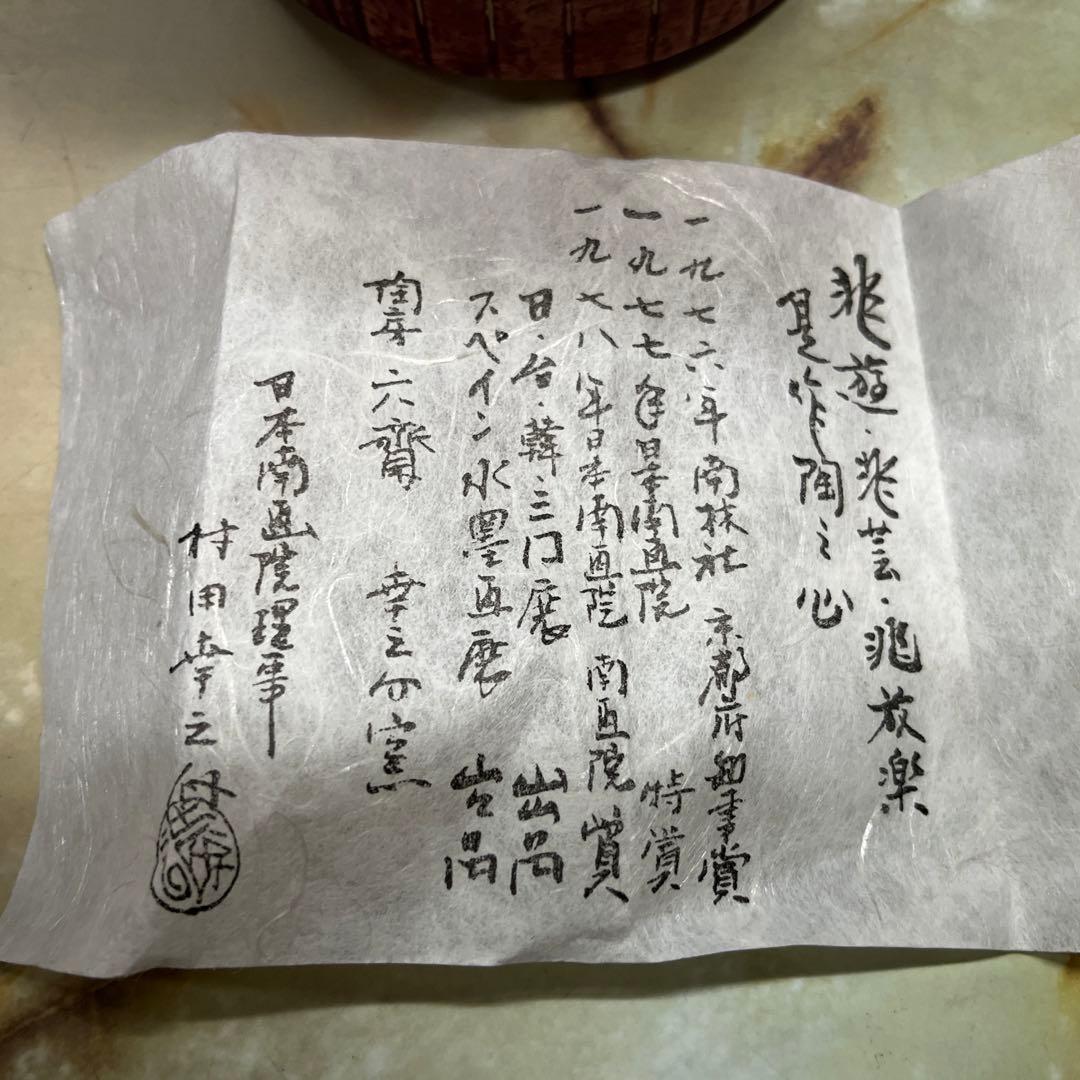 兆遊・兆芸・兆放楽
是作陶之心
一九七六年 南林社 京都府知事賞
一九七七年日本南画院 特賞
一九七八年日本南画院 南画院賞
日・台・韓・三门展 出品
スペイン水墨画展 出品
陶房 六齋 幸之介窯
日本南画院理事
村田幸之介